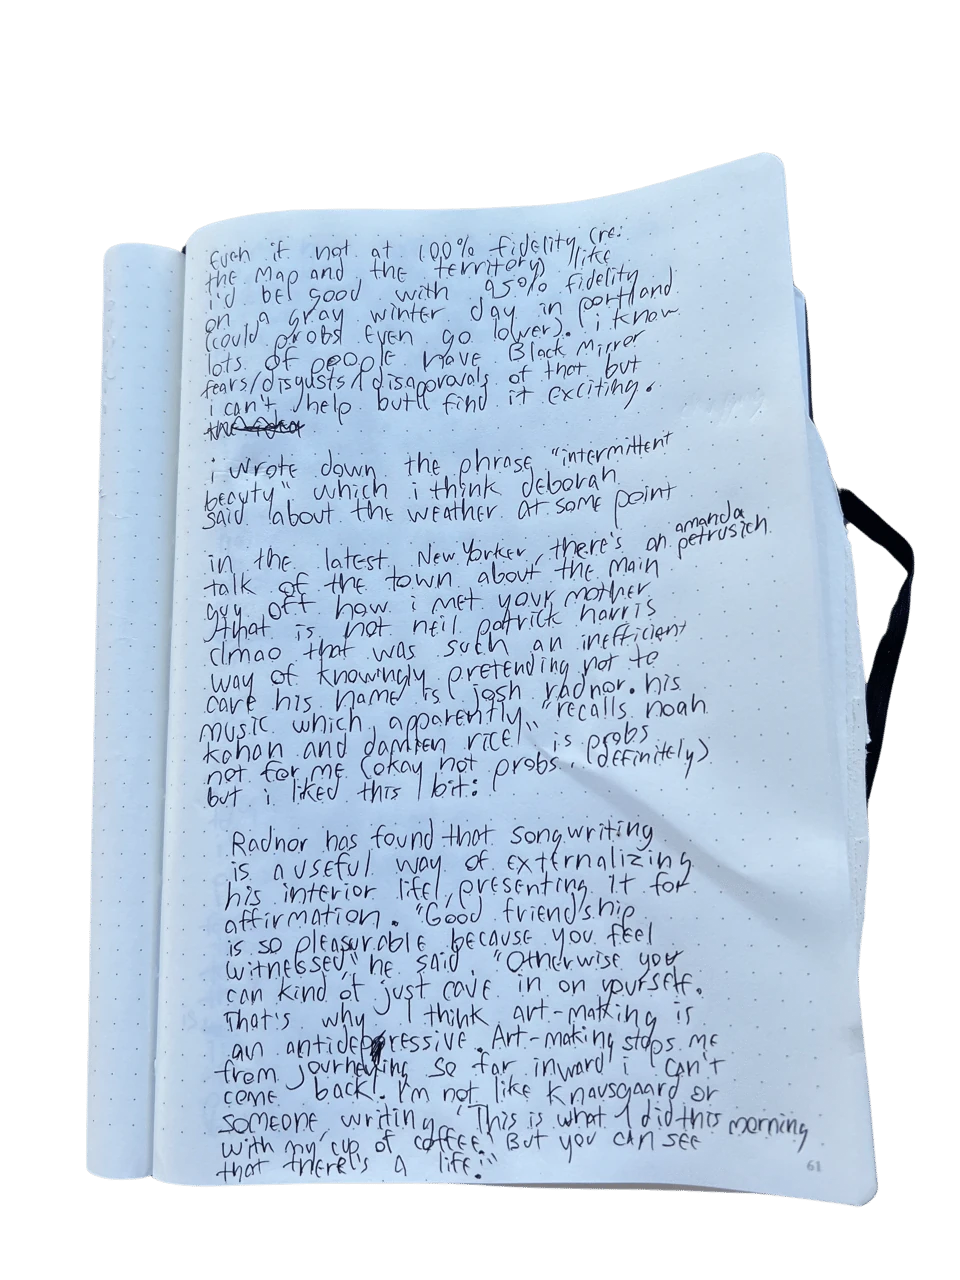 Even if not at 100% fidelity (re:
the map and the territory) like
i'd be good with 950% fidelity
on a gray winter day in portland
(could probs even go lower). i know
lots of people have Black Mirror
fears/disgusts/disapprovals of that but
i can't help but find it exciting.
i wrote down the phrase "intermittent
beauty" which i think deborah
said about the weather at some point
amanda
in the latest New Yorker, there's an petrusich
talk of the town about the main
guy off how i met your mother
that is not neil patrick harris
(lmao that was such an inefficient
way of knowingly pretending not to
care his name is josh radnor. his
music which, apparently, "recalls noah
kahan and damien rice" is probs
not for me (okay not probs. definitely)
but i liked this bit:
Radnor has found that songwriting
is a useful way of externalizing
his interior life, presenting it for
affirmation. "Good friendship
is so pleasurable because you feel
witnessed," he said, "Otherwise you
can kind of just cave in on yourself.
That's why I think art-making is
an antidepressive. Art-making stops me
from journeying so far inward i can't
come back. I'm not like Knausgaard or
someone, writing, 'This is what I did this morning
with my cup of coffee.' But you can see
that there's a life."
61